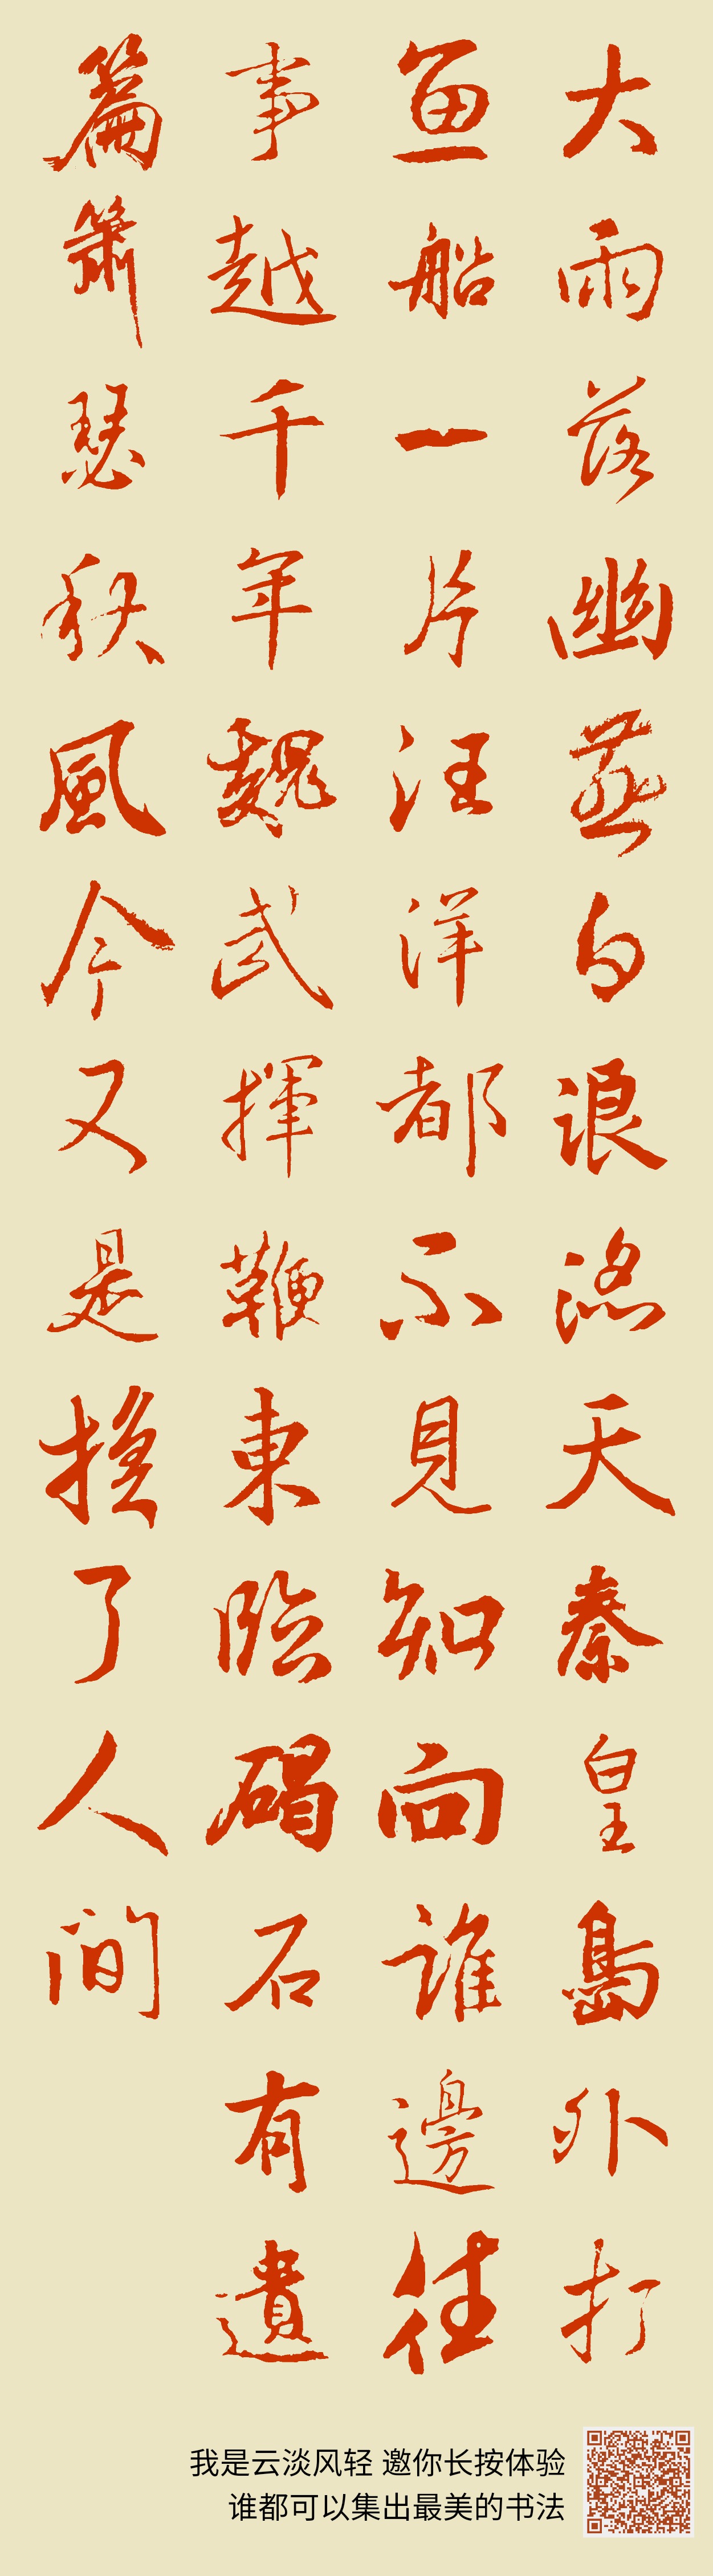 大雨落幽燕白浪滔天秦皇島外打
鱼船一片汪洋都不見知向誰邊往
事越千年魏武揮鞭東臨碣石有遺
篇簫瑟秋風今又是換了人間
我是云淡风轻 邀你长按体验
谁都可以集出最美的书法